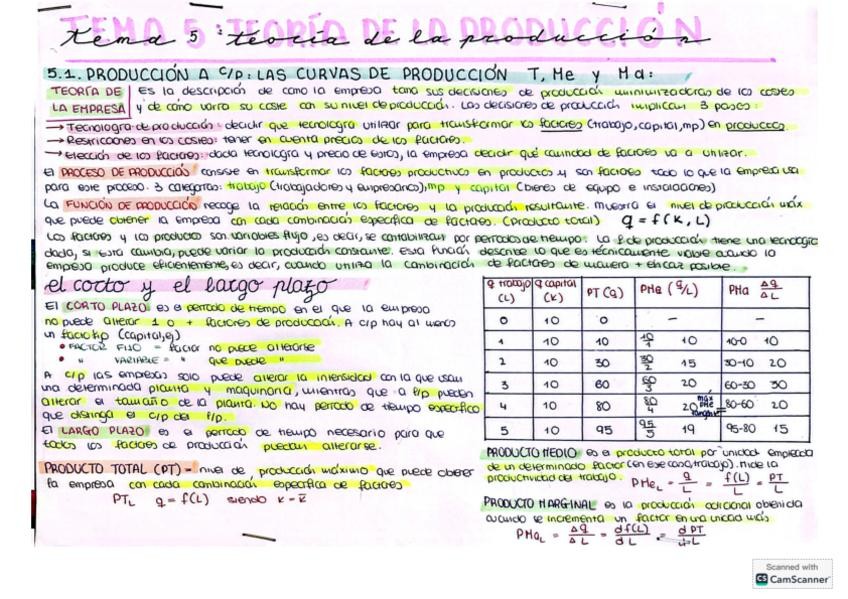 TEMA 5: TEORÍA DE LA PRODUCCIÓN
tema 5: teoría de la producción
5.1. PRODUCCIÓN A C/P: LAS CURVAS DE PRODUCCIÓN T, Me y Ma:
TEORÍA DE LA EMPRESA
Es la descripción de como la empresa toma sus decisiones de producción minimizadoras de los costes
y de cómo varía su coste con su nivel de producción. Las decisiones de producción implican 3 pasos:
→ Tecnología de producción: decidir que tecnología utilizar para transformar los factores (trabajo, capital, mp) en productos.
→ Restricciones en los costes: tener en cuenta precios de los factores.
→ Elección de los factores: dada tecnología y precio de estos, la empresa decidir qué cantidad de factores va a utilizar.
El PROCESO DE PRODUCCIÓN consiste en transformar los factores productivos en productos y son factores todo lo que la empresa usa
para este proceso. 3 categorías: trabajo (trabajadores y empresarios), mp y capital (bienes de equipo e instalaciones)
La FUNCIÓN DE PRODUCCIÓN recoge la relación entre los factores y la producción resultante. Muestra el nivel de producción máx
que puede obtener la empresa con cada combinación específica de factores. (Producto total) q = f(K, L)
Los factores y los productos son variables flujo, es decir, se contabilizan por periodos de tiempo. La f. de producción tiene una tecnología
dada, si esta cambia, puede variar la producción constante. Esta función describe lo que es técnicamente viable cuando la
empresa produce eficientemente, es decir, cuando utiliza la combinación de factores de manera + eficaz posible.
el corto y el largo plazo
El CORTO PLAZO es el periodo de tiempo en el que la empresa
no puede alterar 1 o + factores de producción. A c/p hay al menos
un factor fijo (capital, ej)
• FACTOR FIJO = factor no puede alterarse
• " VARIABLE = " que puede "
A c/p las empresas solo puede alterar la intensidad con la que usan
una determinada planta y maquinaria, mientras que a l/p pueden
alterar el tamaño de la planta. No hay periodo de tiempo específico
que distinga el c/p del l/p.
El LARGO PLAZO es el periodo de tiempo necesario para que
todos los factores de producción puedan alterarse.
PRODUCTO TOTAL (PT) = nivel de producción máximo que puede obtener
la empresa con cada combinación específica de factores
PTL q = f(L) siendo K = K̄
q trabajo (L) q capital (K) PT (Q) PMe (q/L) PMa Δq/ΔL
0 10 0 – –
1 10 10 10/1 10 10-0 10
2 10 30 30/2 15 30-10 20
3 10 60 60/3 20 60-30 30
4 10 80 80/4 20 máx PMe 80-60 20
5 10 95 95/5 19 95-80 15
PRODUCTO MEDIO es el producto total por unidad empleada
de un determinado factor (en ese caso, trabajo). Mide la
productividad del trabajo. PMeL = q/L = f(L)/L = PT/L
PRODUCTO MARGINAL es la producción adicional obtenida
cuando se incrementa un factor en una unidad más
PMaL = Δq/ΔL = df(L)/dL = dPT/dL
Scanned with
CS CamScanner